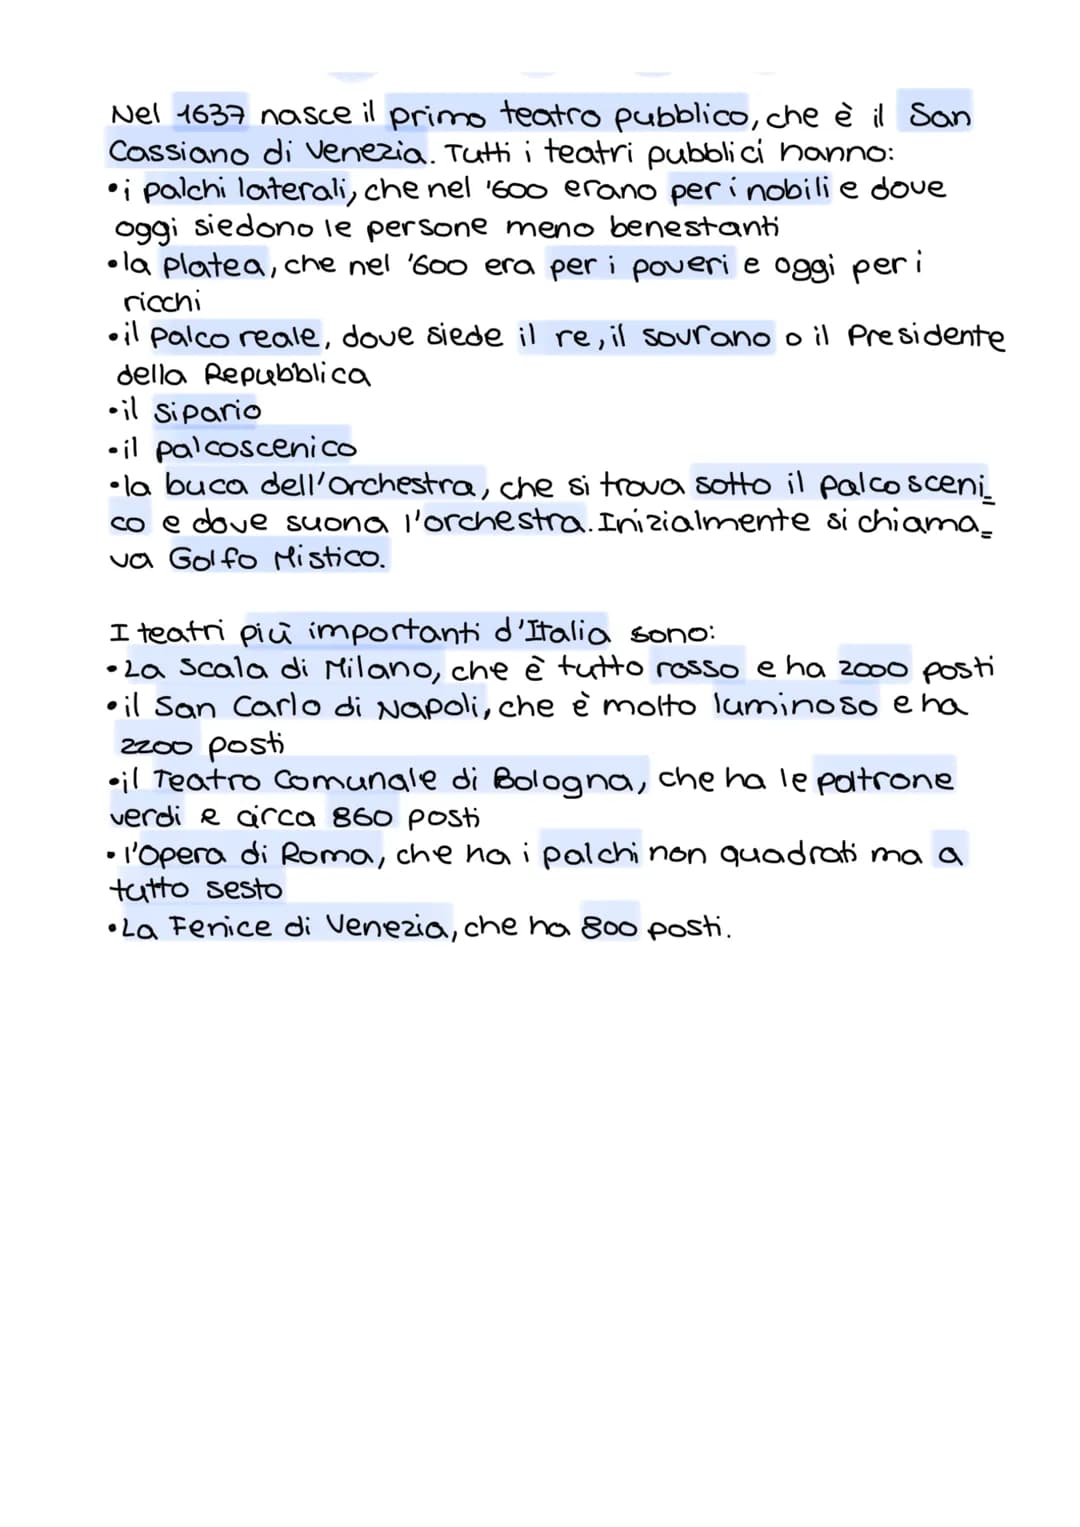 Nel 1637 nasce il primo teatro pubblico, che è il San
Cassiano di Venezia. Tutti i teatri pubblici hanno:
•i palchi laterali, che nel '600 erano per i nobili e dove
oggi siedono le persone meno benestanti
•la platea, che nel '600 era per i poveri e oggi per i
ricchi
•il palco reale, dove siede il re, il sovrano o il Presidente
della Repubblica
•il sipario
•il palcoscenico
•la buca dell'orchestra, che si trova sotto il palcosceni_
co e dove suona l'orchestra. Inizialmente si chiama_
va Golfo Mistico.
I teatri più importanti d'Italia sono:
•La Scala di Milano, che è tutto rosso e ha 2000 posti
•il San Carlo di Napoli, che è molto luminoso e ha
2200 posti
•il Teatro Comunale di Bologna, che ha le poltrone
verdi e circa 860 posti
•l'Opera di Roma, che ha i palchi non quadrati ma a
tutto sesto
•La Fenice di Venezia, che ha 800 posti.